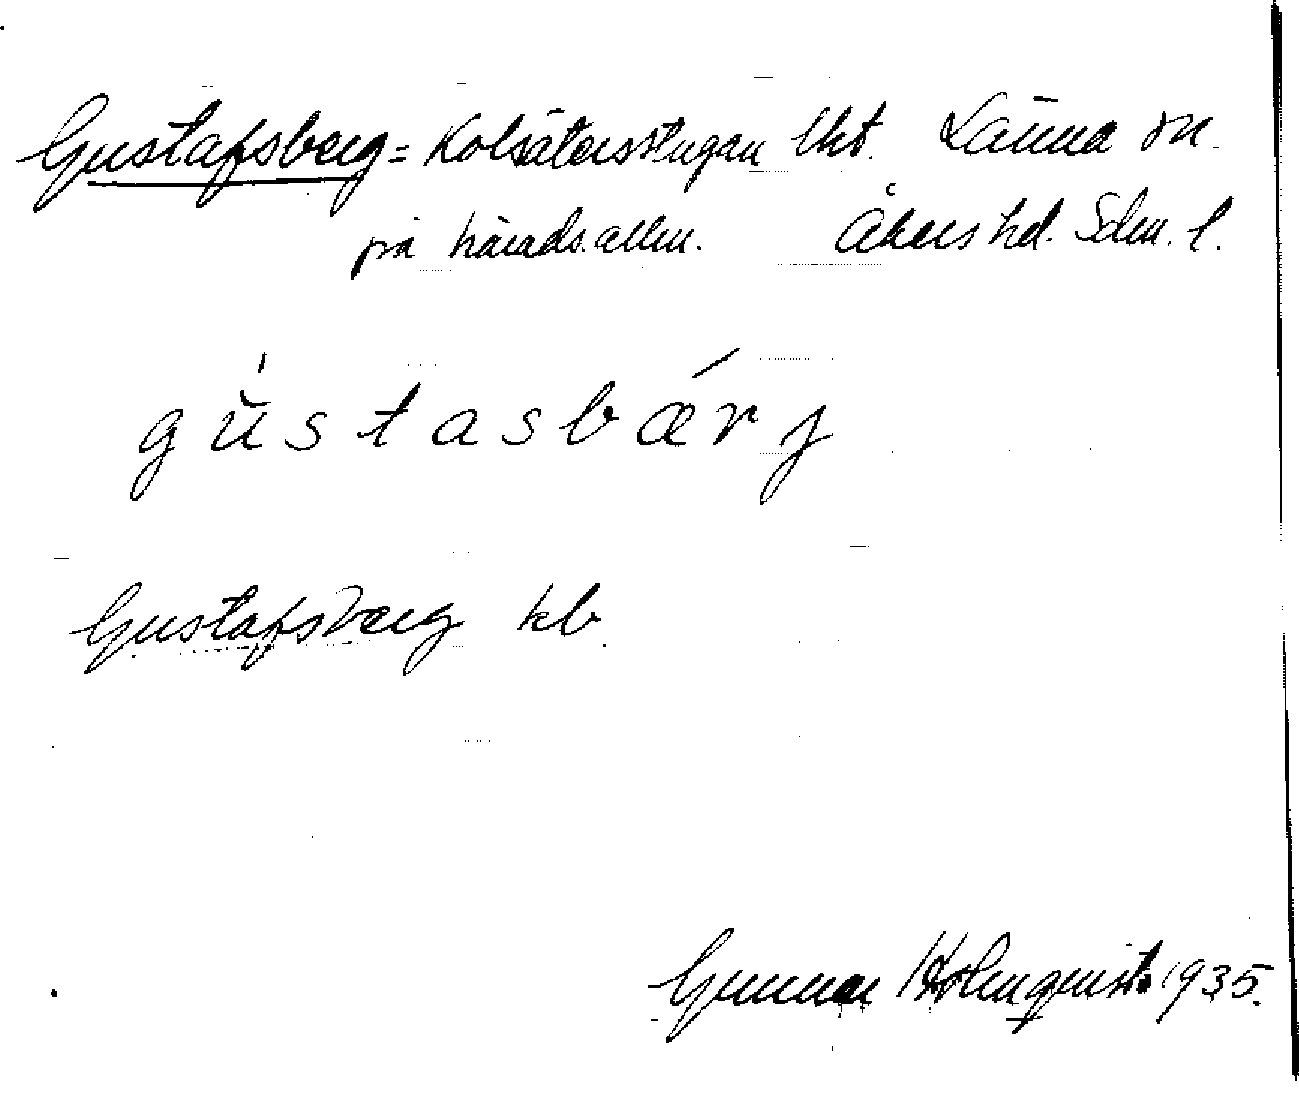 Gustafsberg = Kolsätersstugan lht. Länna sn.
på härads.allm. Åkers hd. Sdm. l.
gŭ́stasbǽrj
Gustafsberg kb
Gunnar Holmquist 1935.